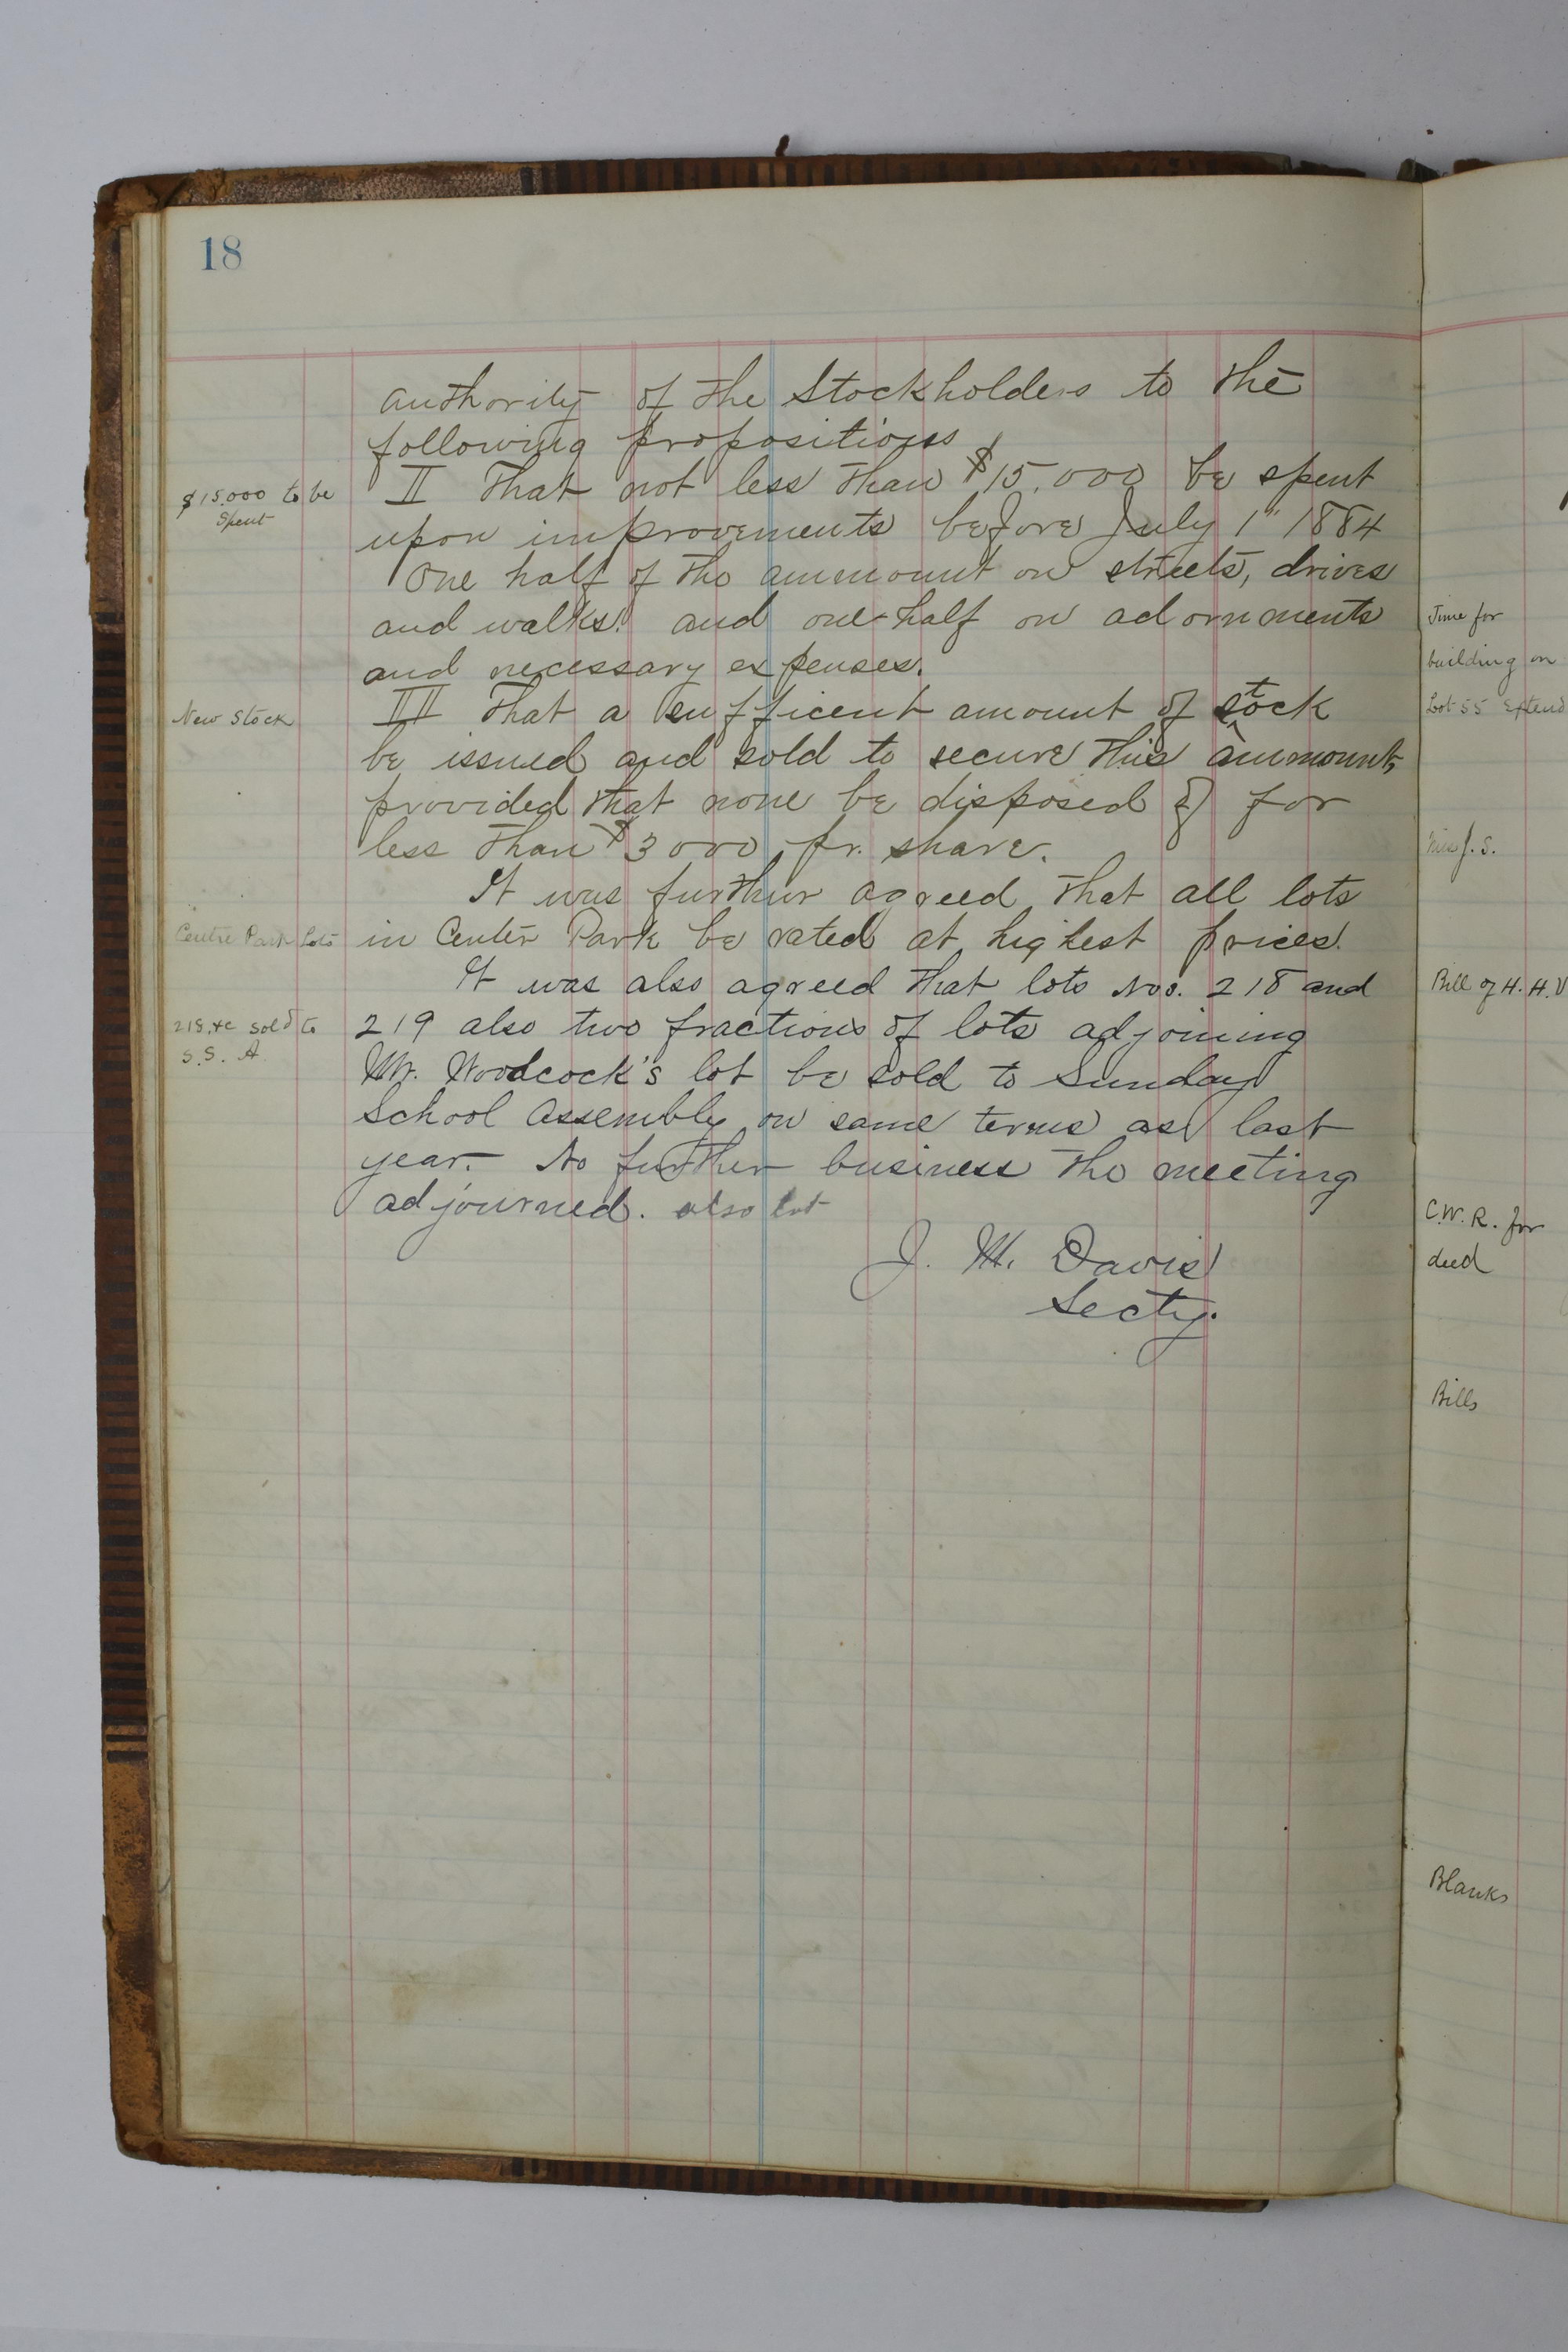 18
authority of the Stockholders to the
following propositions
$15.000 to be
Spent
II That not less than $15,000 be spent
upon improvements before July 1" 1884
One half of the ammount on streets, drives
and walks. and one half on adornments
and necessary expenses.
New Stock
III That a sufficent amount of stock
be issued and sold to secure this ammount,
provided that none be disposed of for
less than $3000 pr. share.
It was further agreed that all lots
Centre Park Lots
in Center Park be rated at highest prices.
It was also agreed that lots Nos. 218 and
218, &c sold to
S.S. A.
219 also two fractions of lots adjoining
Mr. Woodcock's lot be sold to Sunday
School Assembly on same terms as last
year. No further business the meeting
adjourned. also lot
J. M. Davis
Secty.
Time for
building on
Lot 55 Extend
J. S.
Bill of H. H. V
C.W. R. for
deed
Bills
Blanks